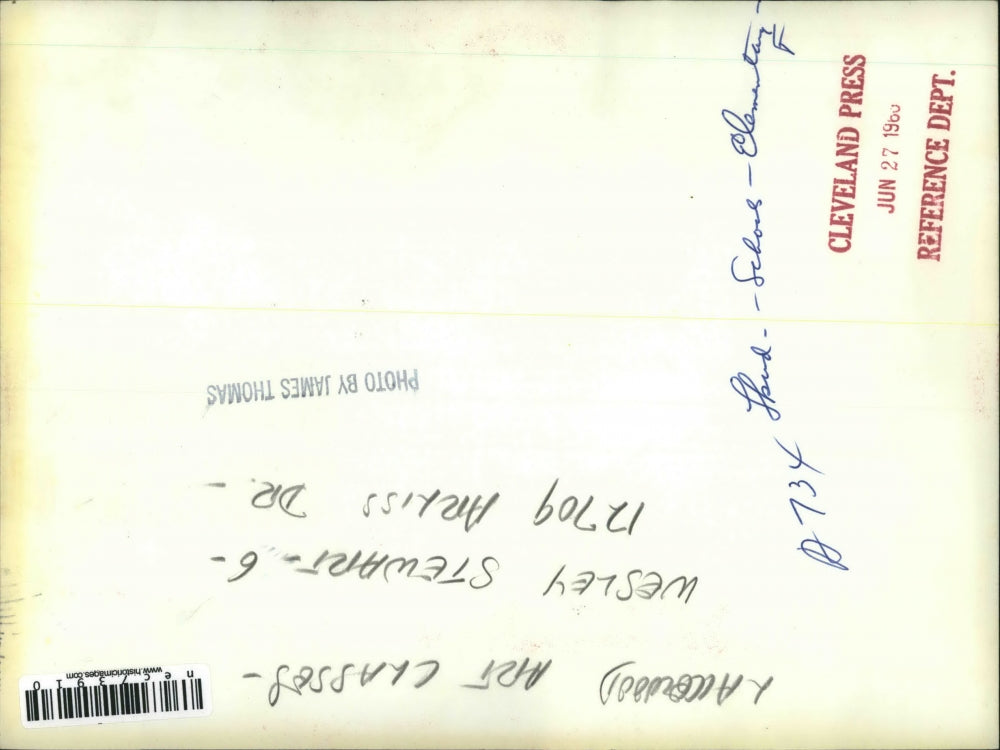 CLEVELAND PRESS
JUN 27 1960
REFERENCE DEPT.
A 734 - - Schools - Elementary -
PHOTO BY JAMES THOMAS
ART CLASSES -
WESLEY STEWART - 6 -
12709 ARLISS DR. -
www.historicimages.com
nec73910